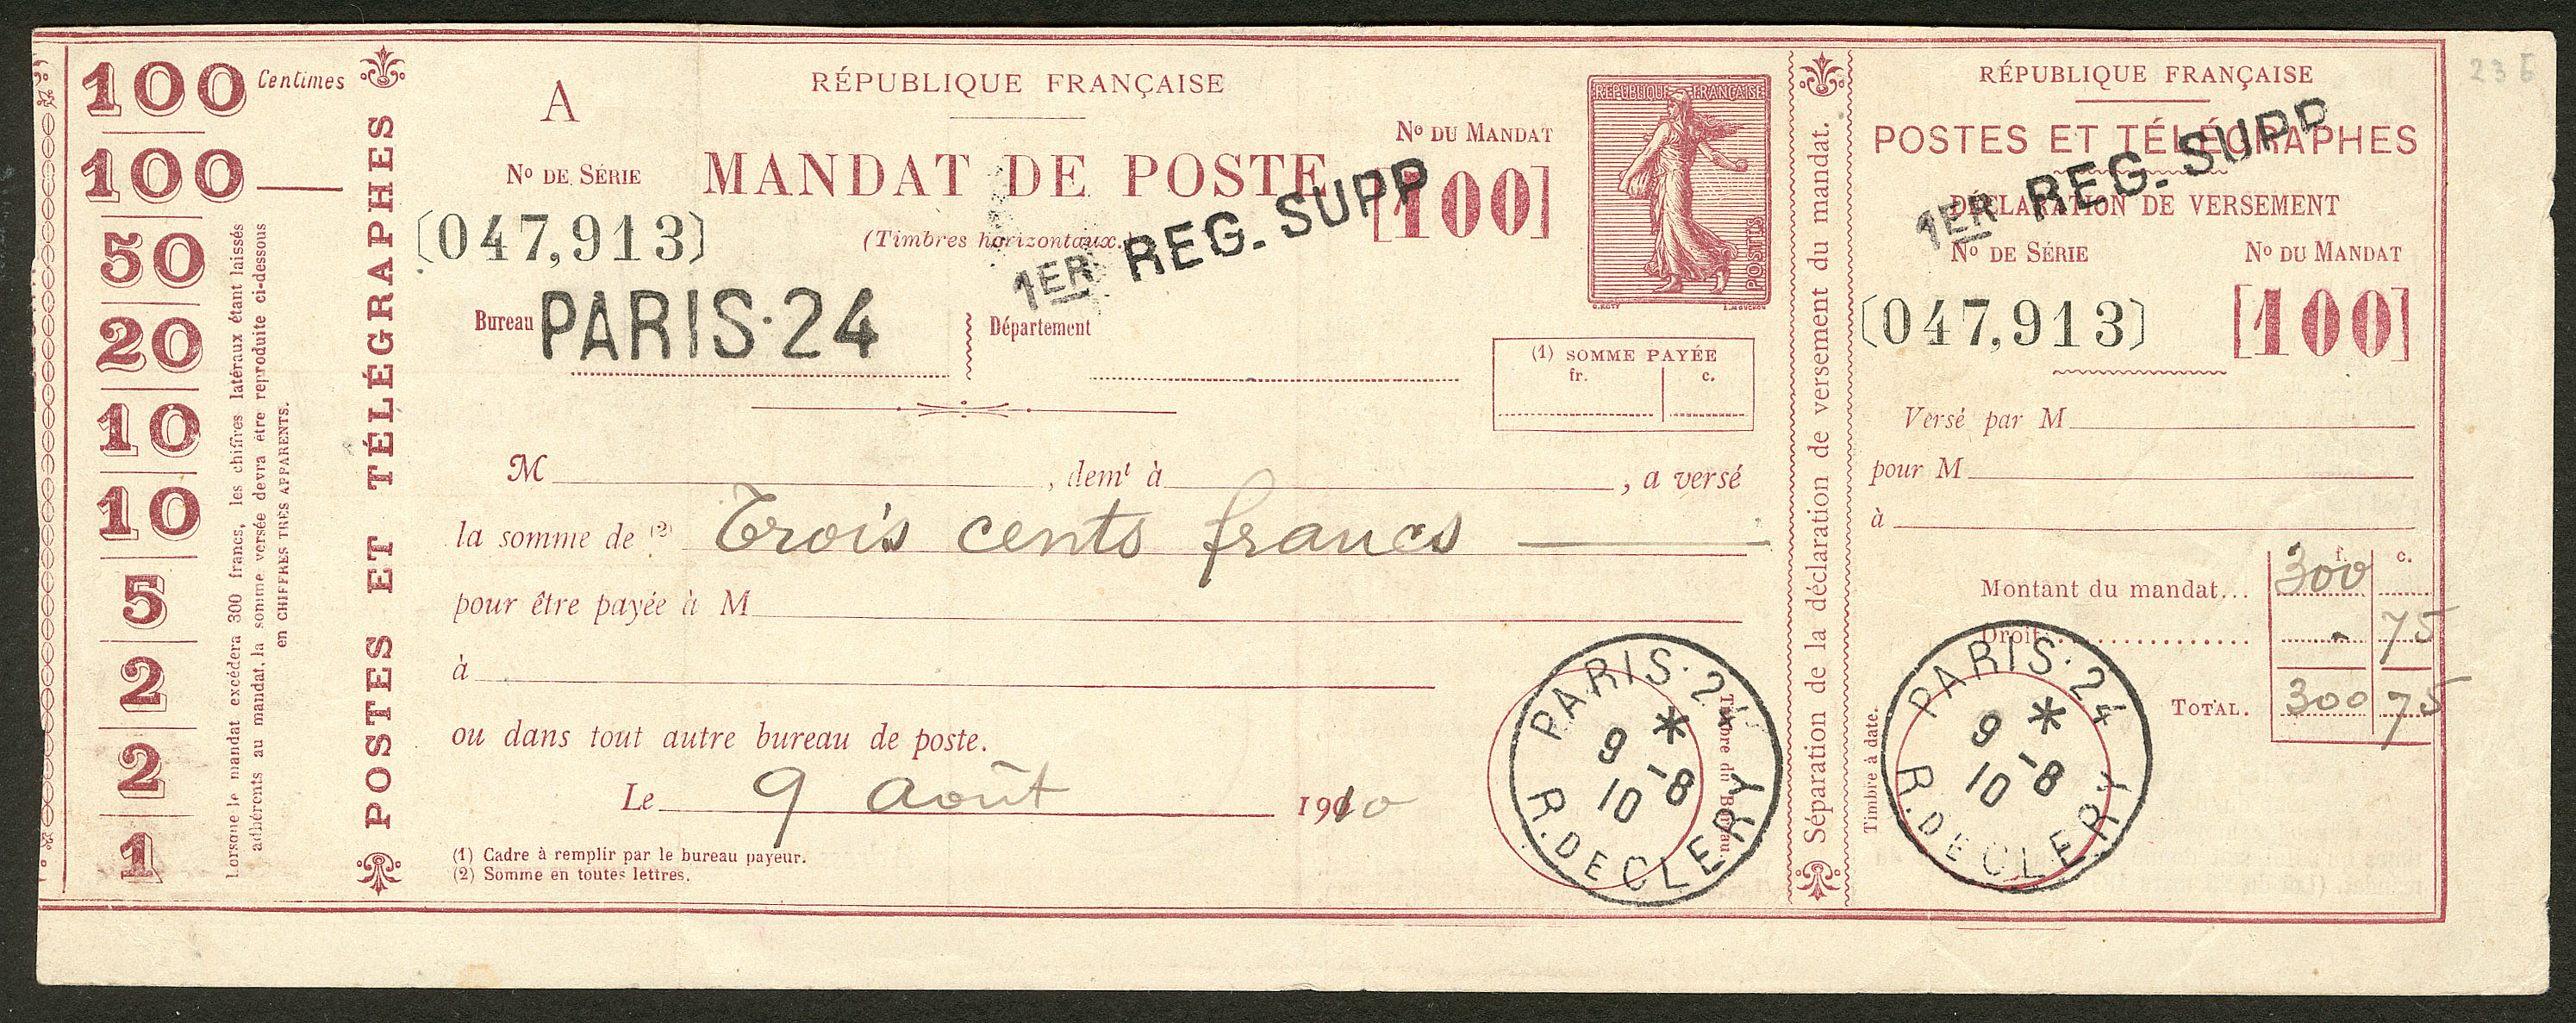 100 Centimes
100
50
20
10
10
5
2
2
1
Lorsque le mandat excédera 300 francs, les chiffres latéraux étant laissés
adhérents au mandat, la somme versée devra être reproduite ci-dessous
en CHIFFRES TRÈS APPARENTS.
POSTES ET TÉLÉGRAPHES
A
RÉPUBLIQUE FRANÇAISE
No DE SÉRIE
MANDAT DE POSTE
No DU MANDAT
(047,913)
(Timbres horizontaux.)
[100]
1ER REG. SUPP
REPUBLIQUE FRANÇAISE
POSTES
O. ROTY
L. MOUCHON
Bureau PARIS·24
Département
(1) SOMME PAYÉE
fr. c.
M , demt à , a versé
la somme de (2) Trois cents francs
pour être payée à M
à
ou dans tout autre bureau de poste.
Le 9 août 1910
(1) Cadre à remplir par le bureau payeur.
(2) Somme en toutes lettres.
Timbre du Bureau
PARIS·24
9 *
10 -8
R. DE CLERY
Séparation de la déclaration de versement du mandat.
RÉPUBLIQUE FRANÇAISE
POSTES ET TÉLÉGRAPHES
1ER REG. SUPP
DÉCLARATION DE VERSEMENT
No DE SÉRIE No DU MANDAT
(047,913) [100]
Versé par M
pour M
à
f. c.
Montant du mandat... 300
Droit 75
TOTAL. 300 75
Timbre à date.
PARIS·24
9 *
10 -8
R. DE CLERY